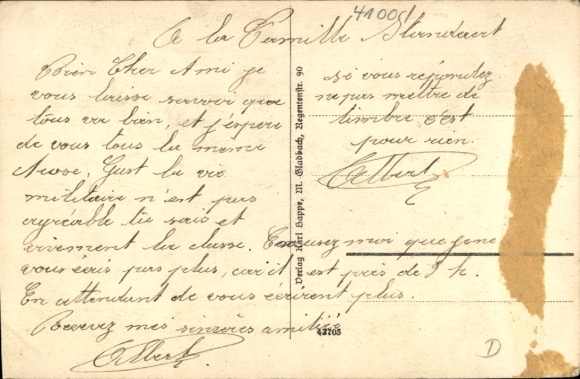 41001
A la Famille Standaert
Bien Cher Ami je
vous laisse savoir que
tous va bien, et j'espere
de vous tous la meme
chose. Just la vie
militaire n'est pas
agréable tu sais et
vivement la classe. Excusez moi que je ne
vous écris pas plus, car il est près de 9 h.
En attendant de vous écrirent plus.
Recevez mes sincères amitiés
Albert
si vous répondez
ne pas mettre de
timbre c'est
pour rien.
Albert
Verlag Karl Happe, M. Gladbach, Regentenstr. 90
42705
D